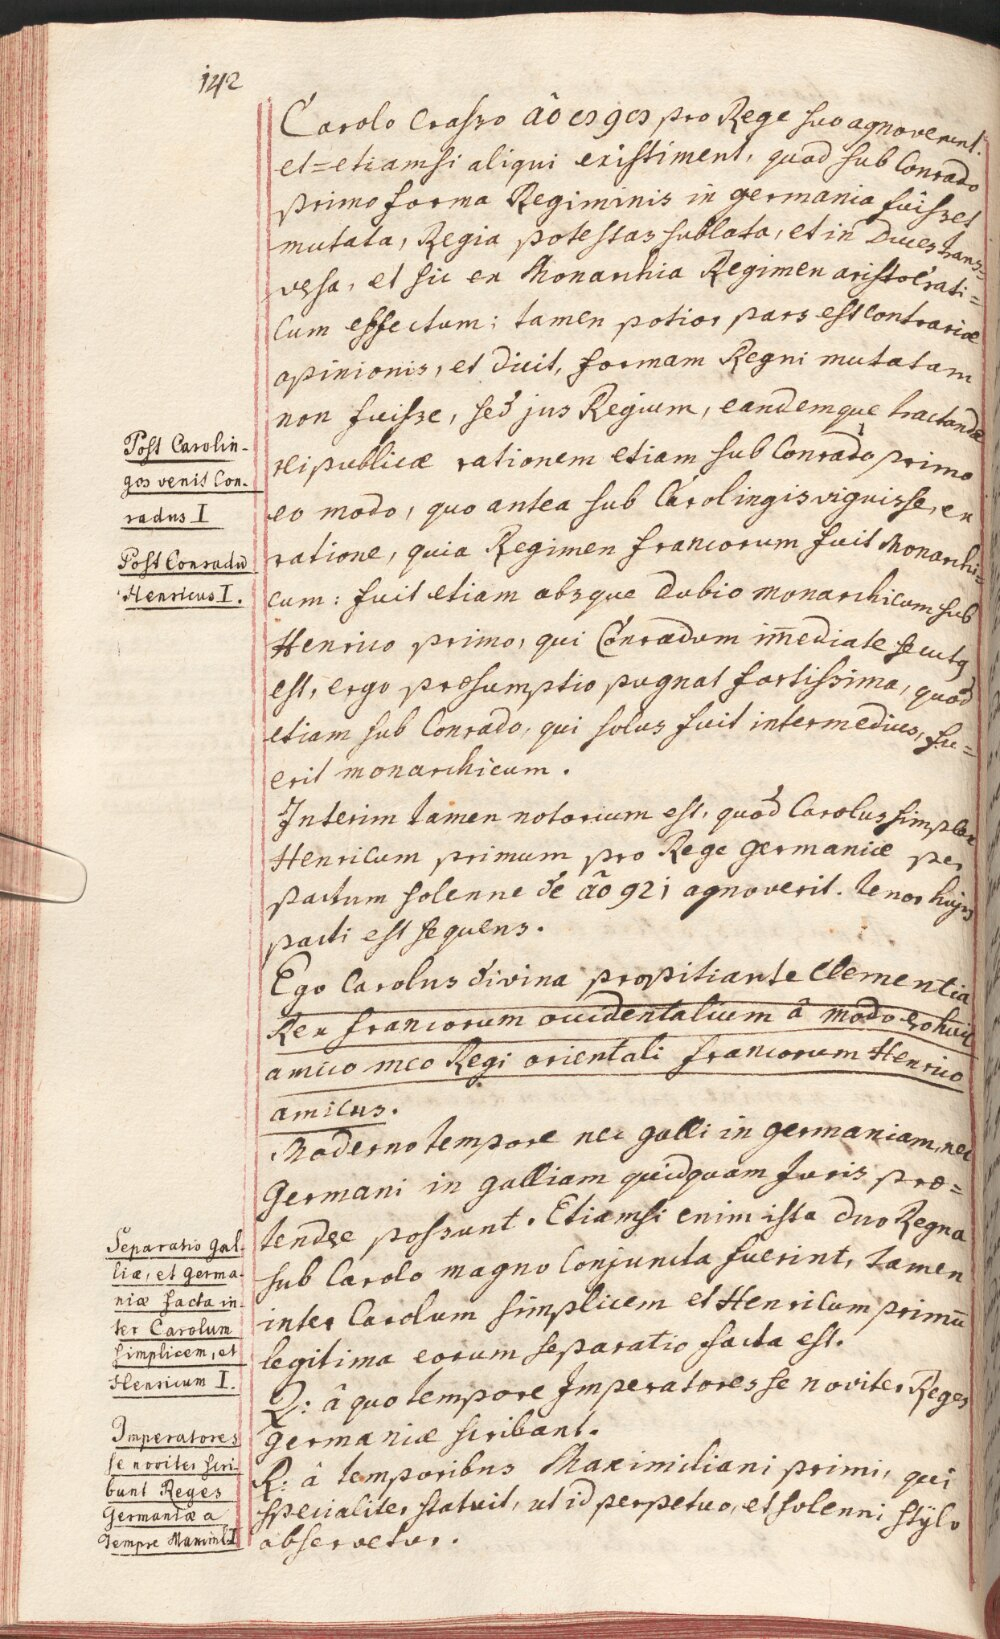 142
Carolo Crasso aô pro Rege suo agnoverunt.
et=etiamsi aliqui existiment, quod sub Conrado
primo forma Regiminis in germania fuisset
mutata, Regia potestas sublata, et in Duces trans=
versa, et sic ex Monarchia Regimen aristocrati=
cum effectum; tamen potior pars est contrariæ
opinionis, et dicit, formam Regni mutatam
non fuisse, sed jus Regium, eandemque tractandæ
reipublicæ rationem etiam sub Conrado primo
eo modo, quo antea sub Carolingis viguisse, ex
ratione, quia Regimen francorum fuit Monarchi=
cum: fuit etiam absque dubio monarchicum sub
Henrico primo, qui Conradum im̄ediate secutq
est, ergo præsumptio pugnat fortissima, quod
etiam sub Conrado, qui solus fuit intermedius, fu=
erit monarchicum.
Interim tamen notorium est, quod Carolus simplex
Henricum primum pro Rege Germaniæ per
pactum solenne de aô 921 agnoverit. tenor hujus
pacti est sequens.
Ego Carolus divina propitiante Clementia
Rex francorum occidentalium â modo ero huic
amico meo Regi orientali francorum Henrico
amicus.
Moderno tempore nec galli in germaniam, nec
Germani in galliam quidquam Juris præ=
tendere possunt. Etiamsi enim ista duo Regna
sub Carolo magno Conjuncta fuerint, tamen
inter Carolum simplicem et Henricum primū
legitima eorum separatio facta est.
Q: â quo tempore Imperatores se noviter Reges
germaniæ scribant.
R: â temporibus Maximiliani primi, qui
specialiter statuit, ut id perpetuo, et solenni stÿlo
observetur.
Post Carolin-
gos venit Con-
radus I
Post Conradū
Henricus I.
Separatio Gal-
liæ, et Germa-
niæ facta in-
ter Carolum
simplicem, et
Henricum I.
Imperatores
se noviter scri-
bunt Reges
Germaniæ a
tempre Maximil: I